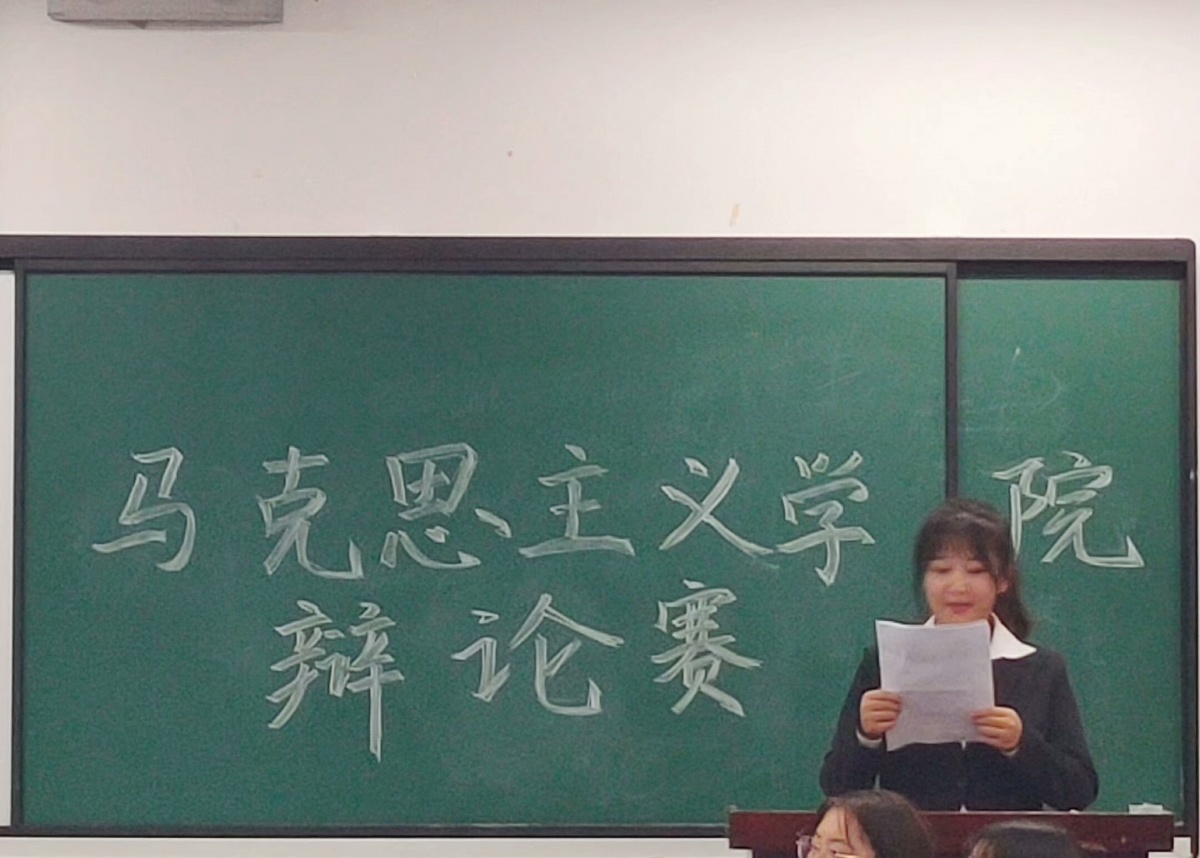 马克思主义学院
辩论赛